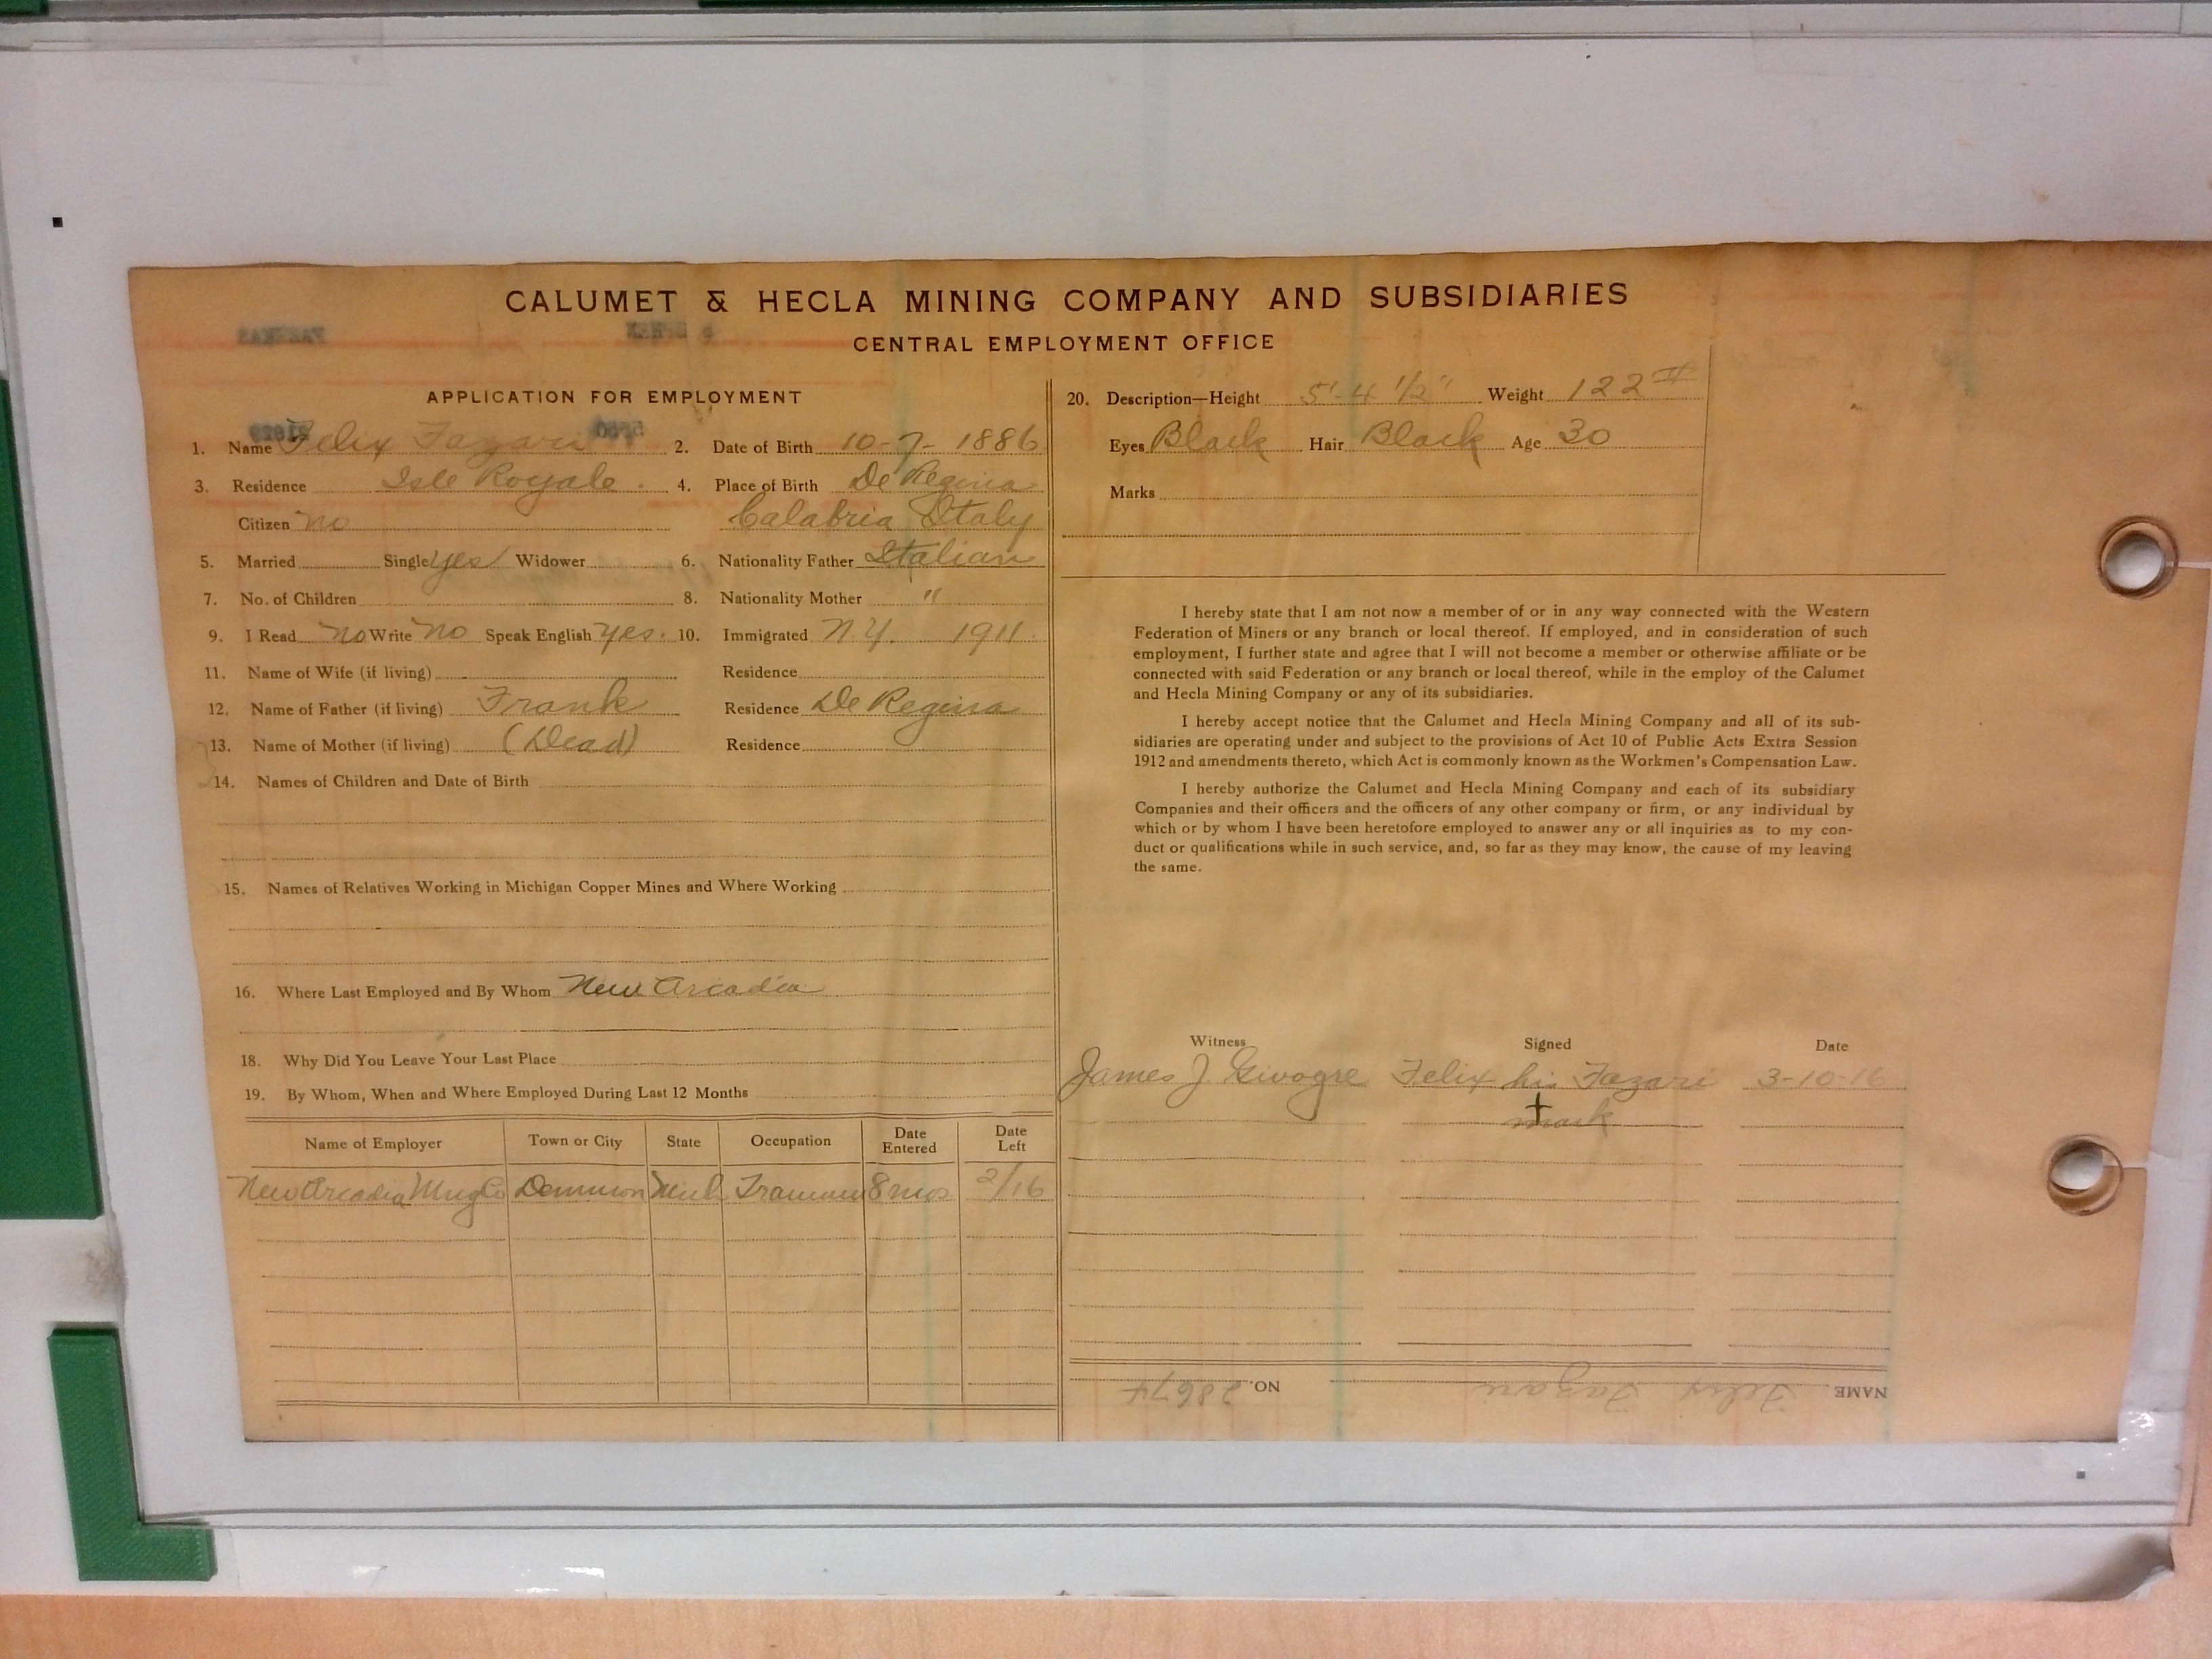 CALUMET & HECLA MINING COMPANY AND SUBSIDIARIES
CENTRAL EMPLOYMENT OFFICE
APPLICATION FOR EMPLOYMENT
1. Name Felix Fazari 2. Date of Birth 10-7-1886
3. Residence Isle Royale. 4. Place of Birth De Regina
Citizen no Calabria Italy
5. Married Single yes Widower 6. Nationality Father Italian
7. No. of Children 8. Nationality Mother "
9. I Read no Write no Speak English yes. 10. Immigrated N.Y. 1911.
11. Name of Wife (if living) Residence
12. Name of Father (if living) Frank Residence De Regina
13. Name of Mother (if living) (Dead) Residence
14. Names of Children and Date of Birth
15. Names of Relatives Working in Michigan Copper Mines and Where Working
16. Where Last Employed and By Whom New Arcadia
18. Why Did You Leave Your Last Place
19. By Whom, When and Where Employed During Last 12 Months
Name of Employer Town or City State Occupation Date Entered Date Left
New Arcadia Mng Co Mich Trammer 8 mos. 2/16
20. Description—Height 5'-4 1/2" Weight 122 #
Eyes Black Hair Black Age 30
Marks
I hereby state that I am not now a member of or in any way connected with the Western
Federation of Miners or any branch or local thereof. If employed, and in consideration of such
employment, I further state and agree that I will not become a member or otherwise affiliate or be
connected with said Federation or any branch or local thereof, while in the employ of the Calumet
and Hecla Mining Company or any of its subsidiaries.
I hereby accept notice that the Calumet and Hecla Mining Company and all of its sub-
sidiaries are operating under and subject to the provisions of Act 10 of Public Acts Extra Session
1912 and amendments thereto, which Act is commonly known as the Workmen's Compensation Law.
I hereby authorize the Calumet and Hecla Mining Company and each of its subsidiary
Companies and their officers and the officers of any other company or firm, or any individual by
which or by whom I have been heretofore employed to answer any or all inquiries as to my con-
duct or qualifications while in such service, and, so far as they may know, the cause of my leaving
the same.
Witness Signed Date
James J. Felix his Fazari 3-10-16
mark
NAME Felix Fazari NO. 28674